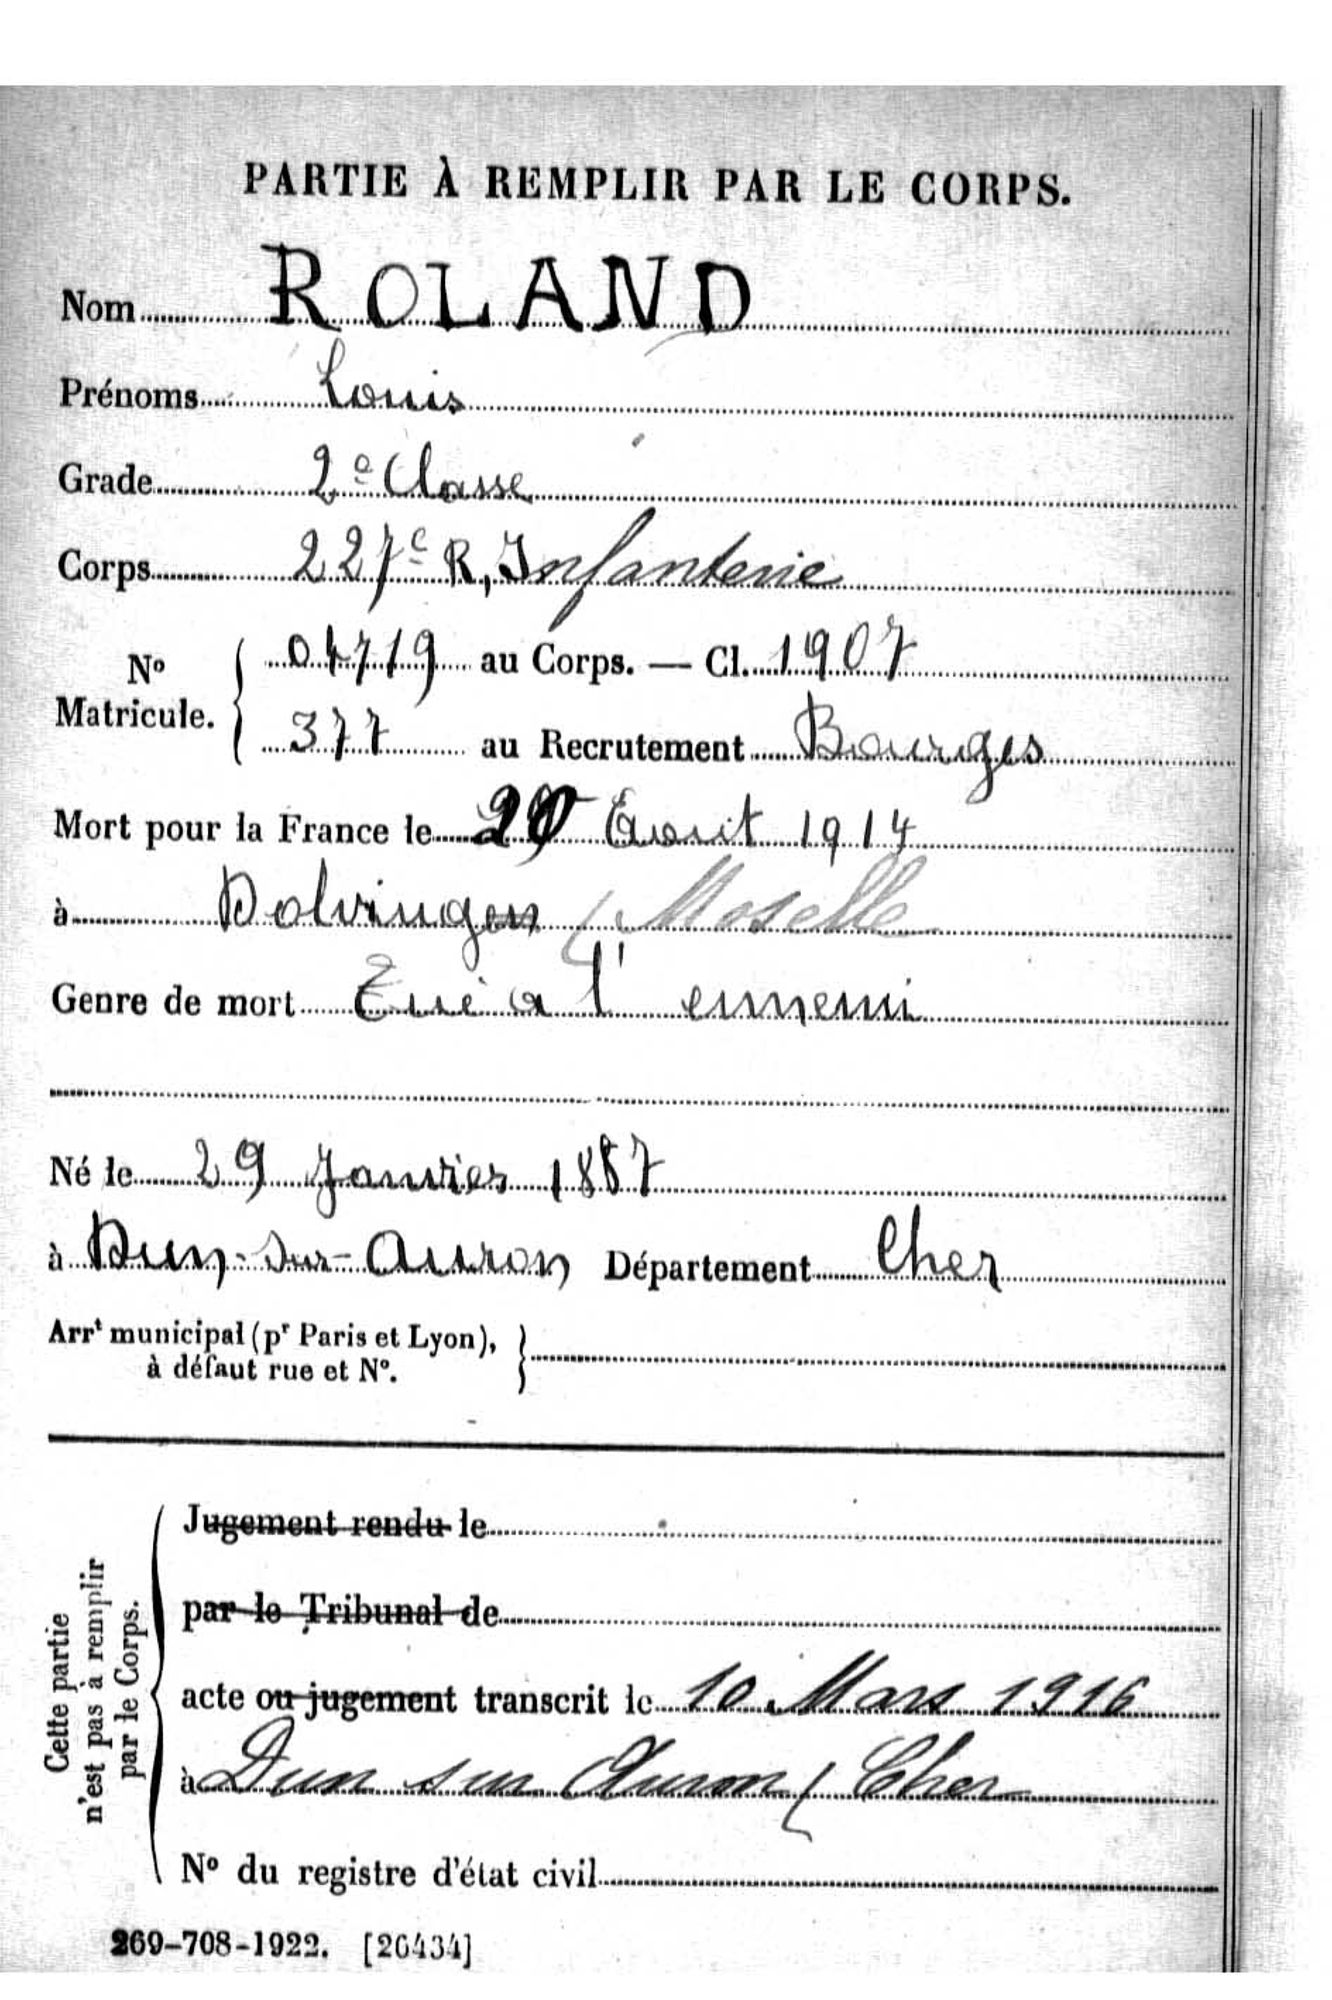 PARTIE À REMPLIR PAR LE CORPS.
Nom ROLAND
Prénoms Louis
Grade 2e Classe
Corps 227e R, Infanterie
No Matricule. 04719 au Corps. — Cl. 1907
377 au Recrutement Bourges
Mort pour la France le 20 Aout 1914
à Dolvingen / Moselle
Genre de mort Tué a l'ennemi
Né le 29 Janvier 1887
à Dun-Sur-Auron Département Cher
Arrt municipal (pr Paris et Lyon),
à défaut rue et No.
Cette partie
n'est pas à remplir
par le Corps.
Jugement rendu le
par le Tribunal de
acte ou jugement transcrit le 10 Mars 1916
à Dun sur Auron / Cher
No du registre d'état civil
269-708-1922. [26434]